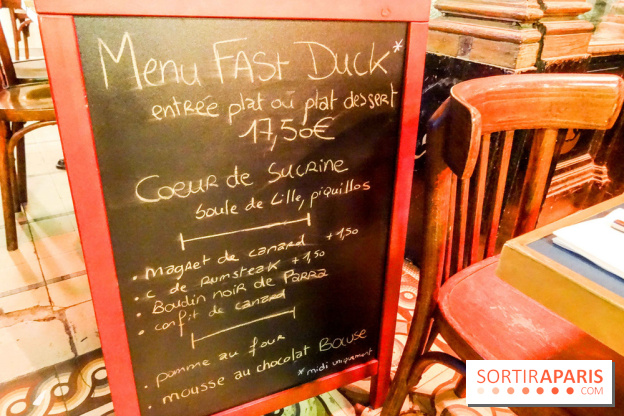 Menu FASt Duck*
entrée plat où plat dessert
17,50€
Coeur de Sucrine
boule de Lille, piquillos
• magret de canard +1,50
• c de Rumsteak +1,50
• Boudin noir de Parra
• confit de canard
• pomme au four
• mousse au chocolat Bocuse
*midi uniquement
SORTIRAPARIS
.COM